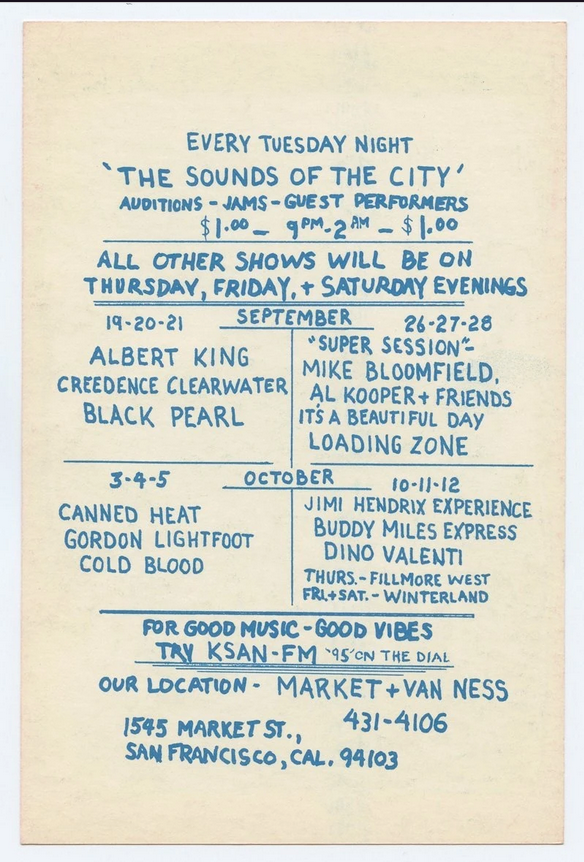 EVERY TUESDAY NIGHT
'THE SOUNDS OF THE CITY'
AUDITIONS - JAMS - GUEST PERFORMERS
$1.00 - 9PM-2AM - $1.00
ALL OTHER SHOWS WILL BE ON
THURSDAY, FRIDAY, + SATURDAY EVENINGS
SEPTEMBER
19-20-21
ALBERT KING
CREEDENCE CLEARWATER
BLACK PEARL
26-27-28
"SUPER SESSION"-
MIKE BLOOMFIELD,
AL KOOPER + FRIENDS
IT'S A BEAUTIFUL DAY
LOADING ZONE
OCTOBER
3-4-5
CANNED HEAT
GORDON LIGHTFOOT
COLD BLOOD
10-11-12
JIMI HENDRIX EXPERIENCE
BUDDY MILES EXPRESS
DINO VALENTI
THURS.-FILLMORE WEST
FRI.+SAT.-WINTERLAND
FOR GOOD MUSIC-GOOD VIBES
TRY KSAN-FM '95' ON THE DIAL
OUR LOCATION - MARKET + VAN NESS
1545 MARKET ST., 431-4106
SAN FRANCISCO, CAL. 94103